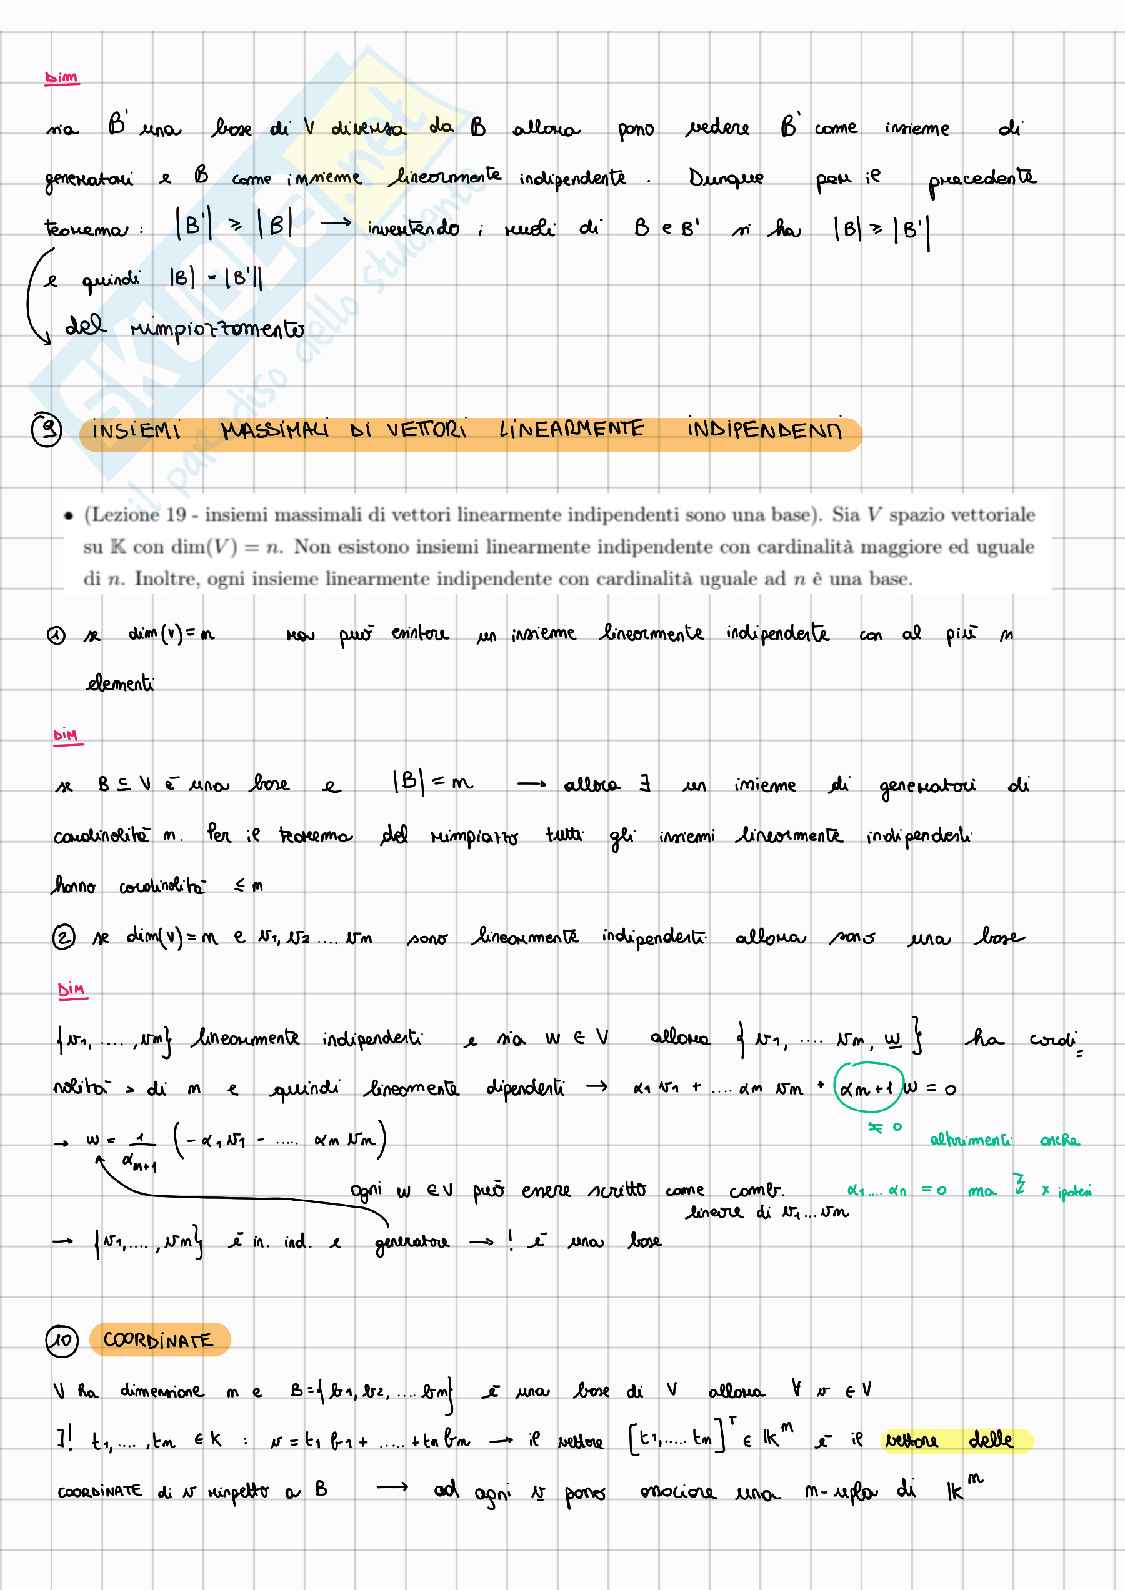 Dim
sia B' una base di V diversa da B allora posso vedere B' come insieme di
generatori e B come insieme linearmente indipendente. Dunque per il precedente
teorema: |B'| ≥ |B| → invertendo i ruoli di B e B' si ha |B| ≥ |B'|
e quindi |B| = |B'|
del rimpiazzamento
SKUOLA.net
il paradiso dello studente
9 INSIEMI MASSIMALI DI VETTORI LINEARMENTE INDIPENDENTI
• (Lezione 19 - insiemi massimali di vettori linearmente indipendenti sono una base). Sia V spazio vettoriale
su 𝕂 con dim(V) = n. Non esistono insiemi linearmente indipendente con cardinalità maggiore ed uguale
di n. Inoltre, ogni insieme linearmente indipendente con cardinalità uguale ad n è una base.
① se dim(V) = n non può esistere un insieme linearmente indipendente con al più n
elementi
DIM
se B ⊆ V è una base e |B| = n → allora ∃ un insieme di generatori di
cardinalità n. Per il teorema del rimpiazzo tutti gli insiemi linearmente indipendenti
hanno cardinalità ≤ n
② se dim(V) = n e v1, v2 .... vn sono linearmente indipendenti allora sono una base
DIM
{v1, ...., vn} linearmente indipendenti e sia w ∈ V allora {v1, .... vn, w} ha cardi=
nalità > di n e quindi linearmente dipendenti → α1 v1 + .... αn vn + αn+1 w = 0
≠ 0 altrimenti anche
→ w = 1/αn+1 (-α1 v1 - ..... αn vn)
ogni w ∈ V può essere scritto come comb. α1 .... αn = 0 ma x ipotesi
lineare di v1 ... vn
→ {v1, ...., vn} è in. ind. e generatore → ! è una base
10 COORDINATE
V ha dimensione n e B = {b1, b2, .... bn} è una base di V allora ∀ v ∈ V
∃! t1, ...., tn ∈ K : v = t1 b1 + ..... + tn bn → il vettore [t1, .... tn]ᵀ ∈ 𝕂ⁿ è il vettore delle
COORDINATE di v rispetto a B → ad ogni v posso associare una n-upla di 𝕂ⁿ